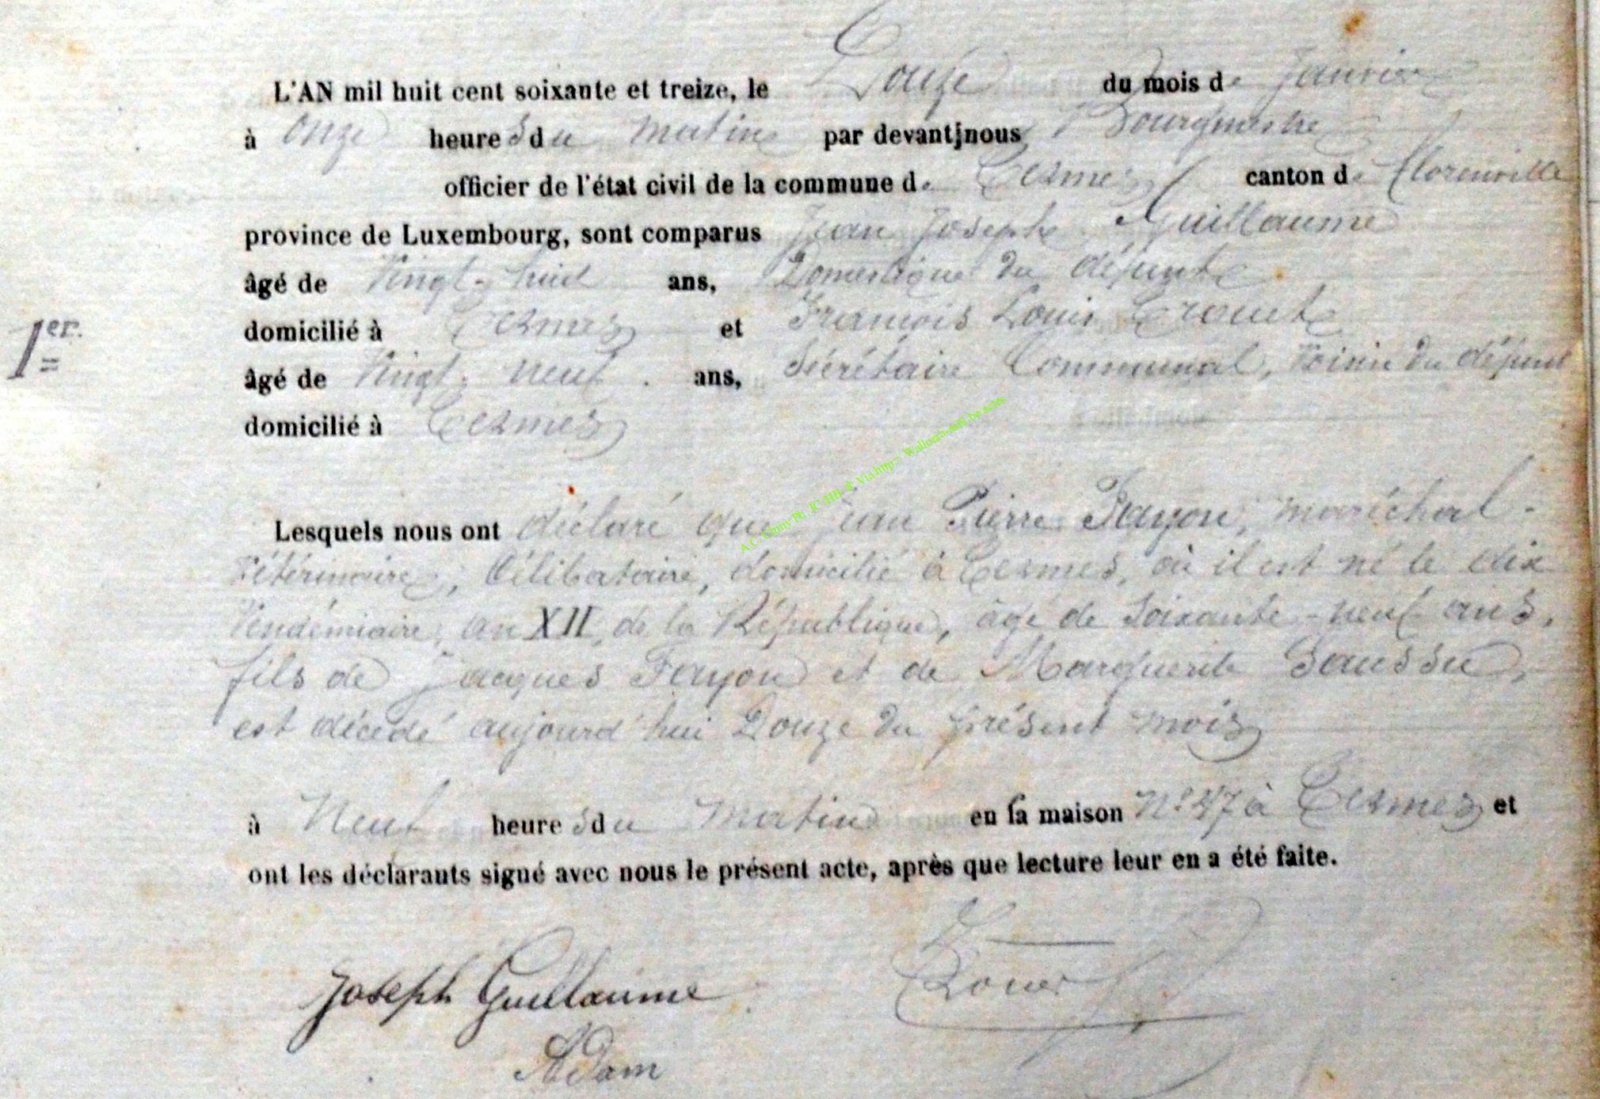 L'AN mil huit cent soixante et treize, le Douze du mois de Janvier
à onze heures du matin par devant nous Bourgmestre
officier de l'état civil de la commune de Termes canton de Florenville
province de Luxembourg, sont comparus Jean Joseph Guillaume
âgé de Vingt-huit ans, Domestique du défunt
domicilié à Termes et François Louis
1er.
âgé de Vingt-neuf ans, Sécrétaire Communal, voisin du défunt
domicilié à Termes
Lesquels nous ont déclaré que Jean Pierre Fayon, maréchal-
Vétérinaire, Célibataire, domicilié à Termes, où il est né le dix
Vendémiaire, an XII, de la République, âgé de Soixante-neuf ans,
fils de Jacques Fayon et de Marguerite
est décédé aujourd'hui Douze du présent mois
à Neuf heures du matin en la maison N° 47 à Termes et
ont les déclarants signé avec nous le présent acte, après que lecture leur en a été faite.
Joseph Guillaume
Adam